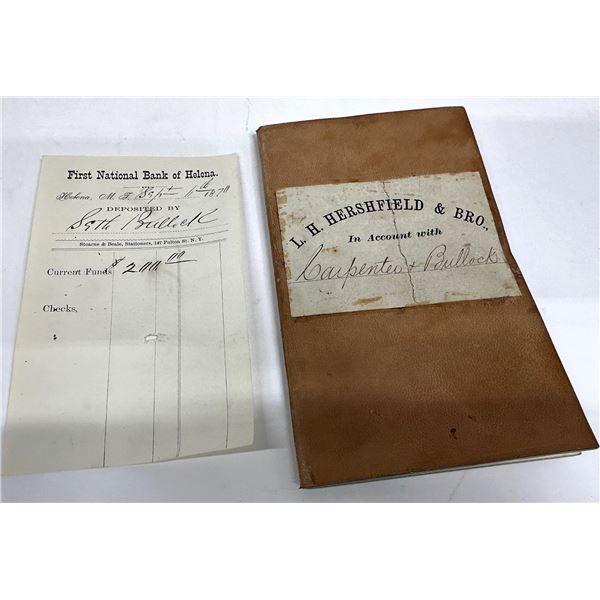 First National Bank of Helena.
Helena, M. T. Sept 1870
DEPOSITED BY
Seth Bullock
Stearns & Beale, Stationers, 147 Fulton St. N. Y.
Current Funds $ 200 00
Checks,
$
L. H. HERSHFIELD & BRO.,
In Account with
Carpenter & Bullock